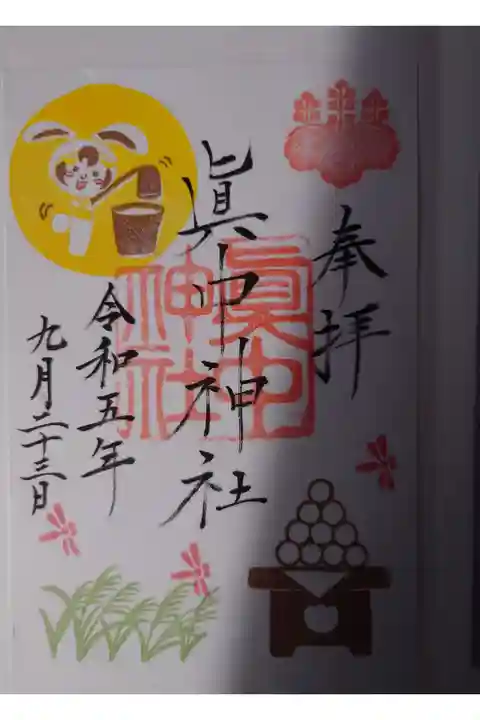 奉拝
眞中神社
眞中
神社
令和五年
九月二十三日